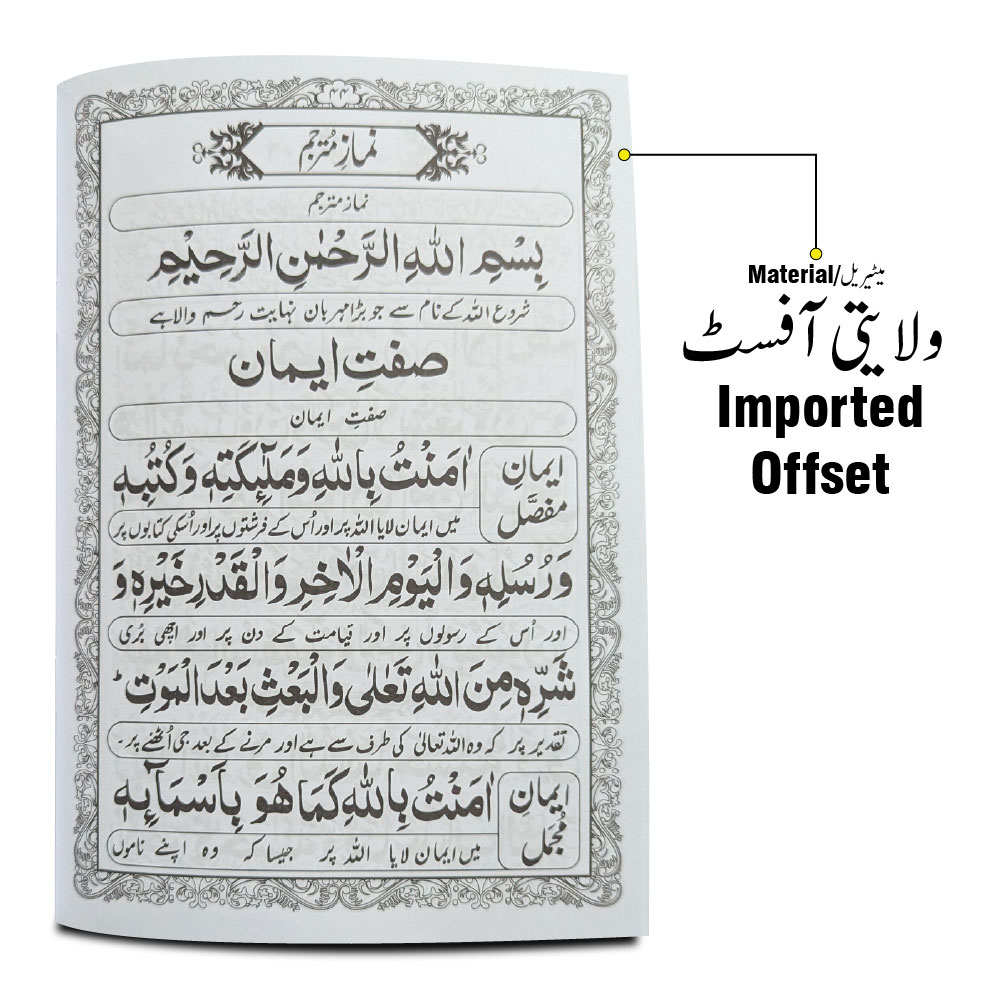 ۴۴
نمازِ مُترجم
نماز مترجم
بِسْمِ اللهِ الرَّحْمٰنِ الرَّحِيْمِ
شروع اللہ کے نام سے جو بڑا مہربان نہایت رحم والا ہے
صفتِ ایمان
صفتِ ایمان
ایمانِ مفصَّل
اٰمَنْتُ بِاللهِ وَمَلٰٓئِكَتِهٖ وَكُتُبِهٖ
میں ایمان لایا اللہ پر اور اُس کے فرشتوں پر اور اُسکی کتابوں پر
وَرُسُلِهٖ وَالْيَوْمِ الْاٰخِرِ وَالْقَدْرِ خَيْرِهٖ وَ
اور اُس کے رسولوں پر اور قیامت کے دن پر اور اچھی بُری
شَرِّهٖ مِنَ اللهِ تَعَالٰى وَالْبَعْثِ بَعْدَ الْمَوْتِ ؕ
تقدیر پر کہ وہ اللہ تعالیٰ کی طرف سے ہے اور مرنے کے بعد جی اُٹھنے پر۔
ایمانِ مُجمَل
اٰمَنْتُ بِاللهِ كَمَا هُوَ بِاَسْمَآئِهٖ
میں ایمان لایا اللہ پر جیسا کہ وہ اپنے ناموں
Material/میٹیریل
ولایتی آفسٹ
Imported
Offset